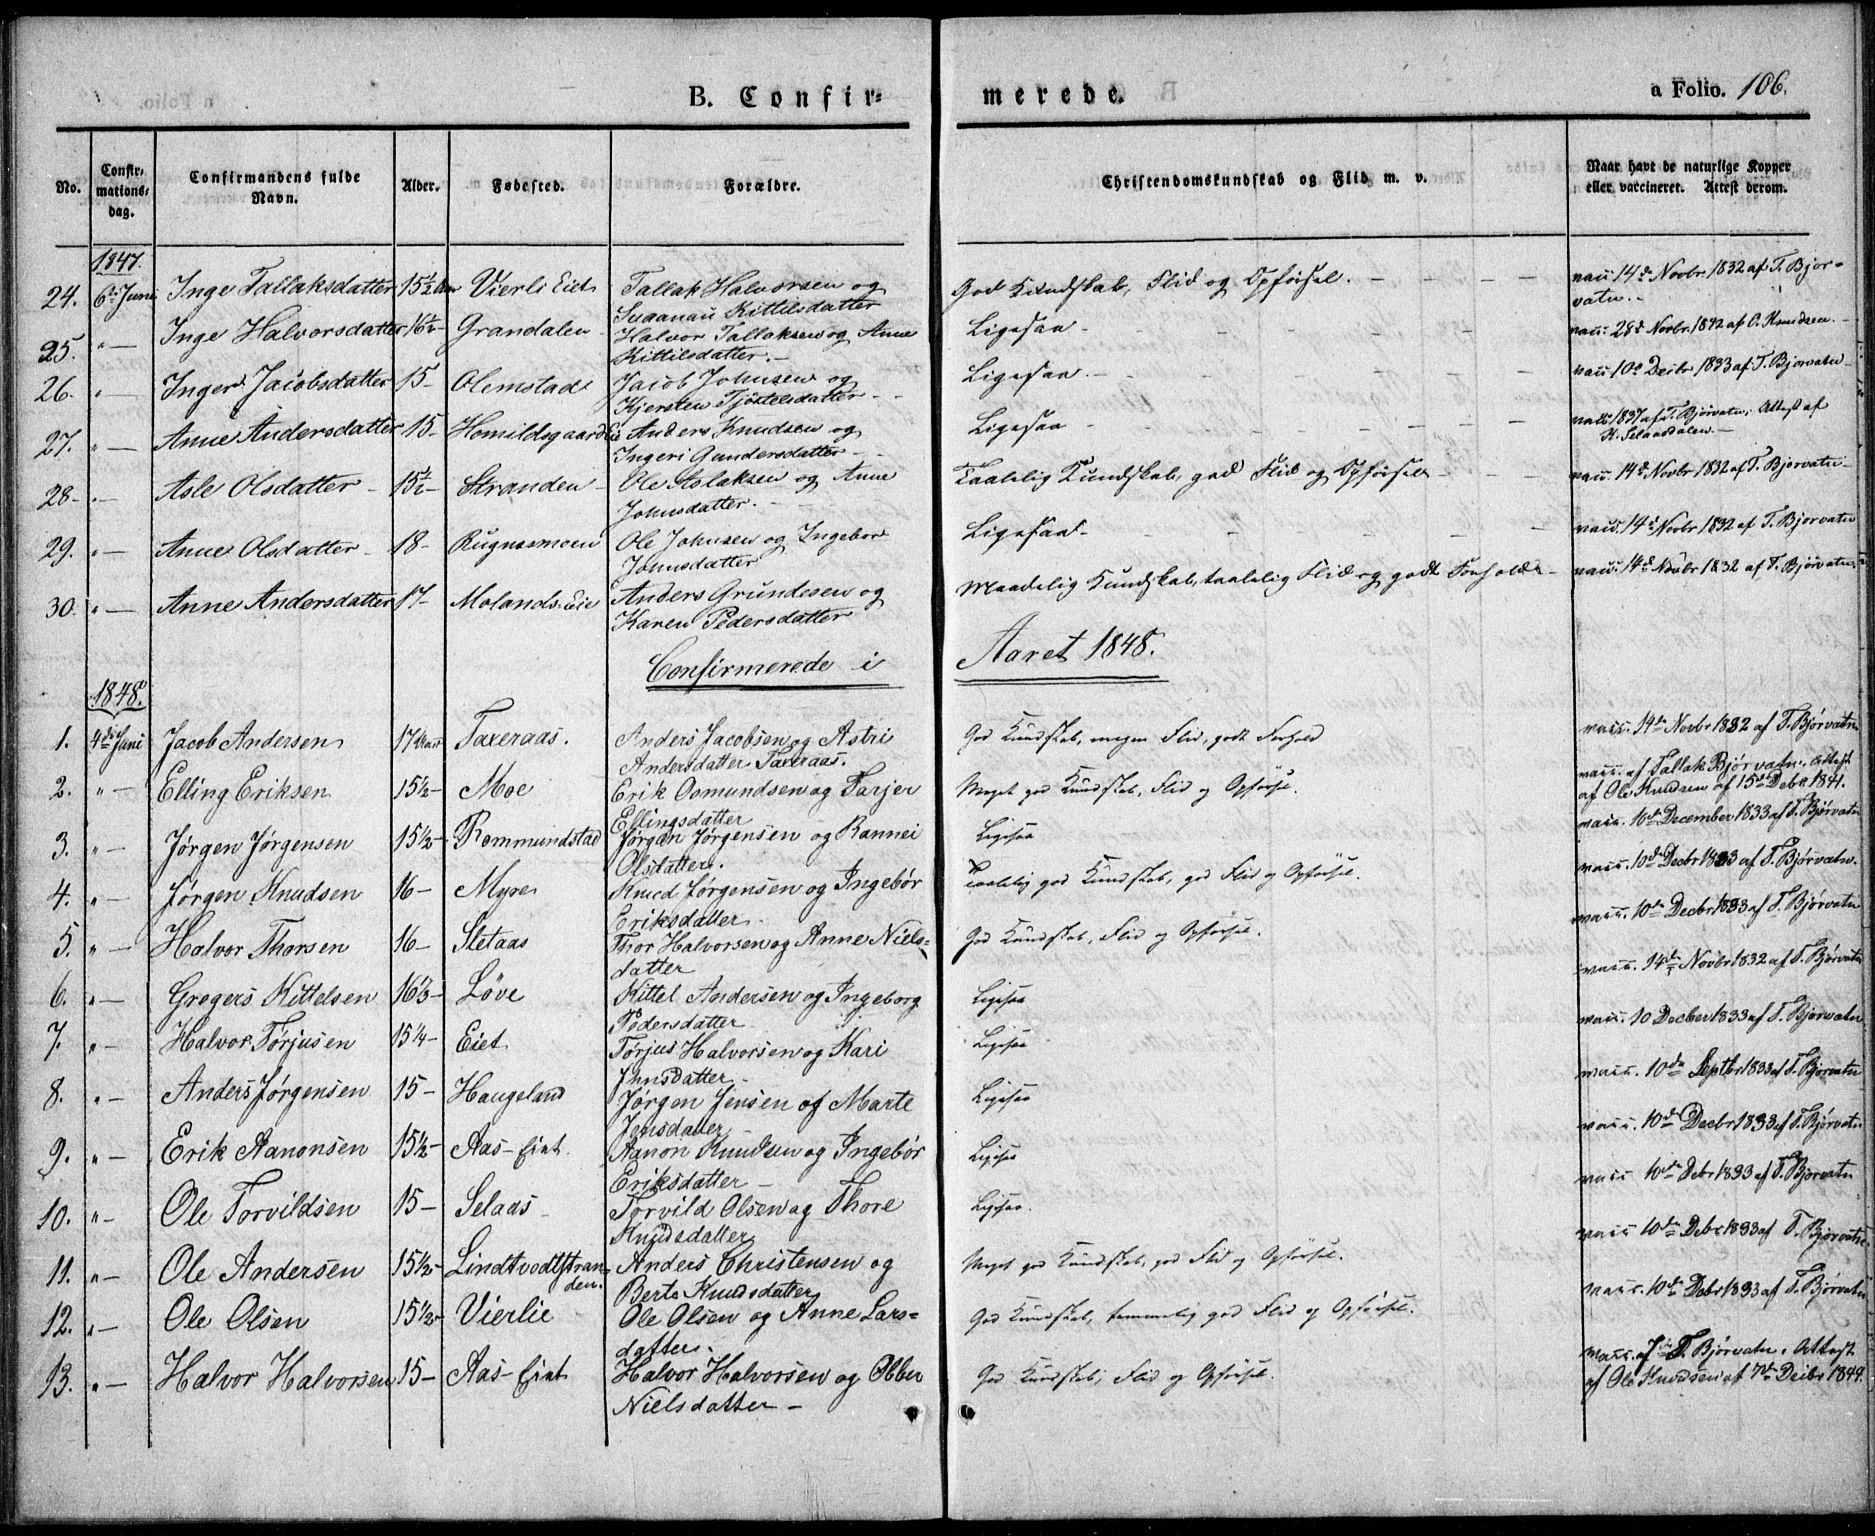 B. Confir=
merede.
a Folio. 106.
No.
Confir-
mations-
dag.
Confirmandens fulde
Navn.
Alder.
Fødested.
Forældre.
Christendomskundskab og Flid m. v.
Naar havt de naturlige Kopper
eller vaccineret. Attest derom.
1847.
24. 6te Juni Inge Tallaksdatter 15½ Aar Vierli Eiet Tallak Halvorsen og God Kundskab, Flid og Opførsel. - vacc 14d Novbr 1832 af T. Bjor-
Kittilsdatter vatn.
25. " — Inge Halvorsdatter 16½- Grandalen Halvor Tallaksen og Anne Ligesaa - vacc. 28d Novbr. 1842 af O. Knudsen. -
Kittilsdatter. -
26. " — Inger Jacobsdatter 15- Olimstad Jacob Johnsen og Ligesaa. - vacc 10de Decbr 1833 af T. Bjorvatn
Kjersten Tjøstelsdatter - -
27. " — Anne Andersdatter 15- Homildsgaard Eie Anders Knudsen og Ligesaa - vacc 1837 af T. Bjørvatn, Attest af
Ingeri Gundersdatter - K. Selaasdalen. -
28- " — Asle Olsdatter - 15½- Stranden Ole Aslaksen og Anne Taalelig Kundskab, god Flid og Opførsel - vacc. 14d Novbr 1832 af T. Bjorvatn
Johnsdatter. -
29. " — Anne Olsdatter - 18- Rugnesmoen Ole Johnsen og Ingebor Ligesaa - vacc. 14d Novbr 1832 af T. Bjorvatn
Johnsdatter
30. " — Anne Andersdatter 17- Molands. Eie Anders Grundesen og Maadelig Kundskab, taalelig Flid og godt Forhold - vacc. 14d Novbr 1832 af T. Bjørvatn.
Karen Pedersdatter
Confirmerede i Aaret 1848.
1848.
1. 4de Juni Jacob Andersen 17 Aar Taxeraas. Anders Jacobsen og Astri God Kundskab, megen Flid, godt Forhold vacc. 14de Novbr 1832 af T. Bjørvatn
Andersdatter Taxeraas.
2. " — Elling Eriksen 15½- Moe Erik Osmundsen og Tarjer Meget god Kundskab, Flid og Opførsel. vacc. af Tallak Bjørvatn. Attest
Ellingsdatter af Ole Knudsen af 15de Debr 1841.
3. " — Jørgen Jørgensen 15½- Rommundstad Jørgen Jørgensen og Rannei Ligesaa vacc. 10de December 1833 af T. Bjørvatn
Olsdatter.
4. " — Jørgen Knudsen 16- Myre Knud Jørgensen og Ingebør Taalelig god Kundskab, god Flid og Opførsel. vacc. 10de Decbr 1833 af T. Bjørvatn.
Eriksdatter.
5. " — Halvor Thorsen 16- Sletaas Thor Halvorsen og Anne Niels= God Kundskab, Flid og Opførsel. vacc. 10de Decbr 1833 af T. Bjørvatn
datter
6. " — Gregers Kittelsen 16⅔- Løve Kittel Andersen og Ingeborg Ligesaa vacc. 14de Novbr 1832 af T. Bjørvatn
Pedersdatter
7. " — Halvor Tørjusen 15¼- Eiet Tørjus Halvorsen og Kari Ligesaa vacc. 10 Decber 1833 af T. Bjørvatn
Jensdatter
8. " — Anders Jørgensen 15- Haugeland Jørgen Jensen of Marte Ligesaa vacc. 10de Septbr 1833 af T. Bjørvatn
Jensdatter
9. " — Erik Aanonsen 15½- Aas-Eiet. Aanon Knudsen og Ingebør Ligesaa vacc. 10de Decbr 1833 af T. Bjørvatn
Eriksdatter -
10. " — Ole Torvildsen 15- Selaas Torvild Olsen og Thore Ligesaa. vacc 10de Debr 1833 af T. Bjorvatn
Knudsdatter
11. " — Ole Andersen 15½- Lindtvedtstran- Anders Christensen og Meget god Kundskab, god Flid og Opførsel. vacc 10de Debr 1833 af T. Bjørvatn
den. Berte Knudsdatter
12. " — Ole Olsen 15½- Vierlie Ole Olsen og Anne Lars= God Kundskab, temmelig god Flid og Opførsel. vacc. 10de Debr 1833 af T. Bjørvatn
datter.
13. " — Halvor Halvorsen 15- Aas-Eiet Halvor Halvorsen og Ebber God Kundskab, Flid og Opførsel. vacc. af T. Bjørvatn. Attest
Nielsdatter - af Ole Knudsen af 7de Decbr 1849.